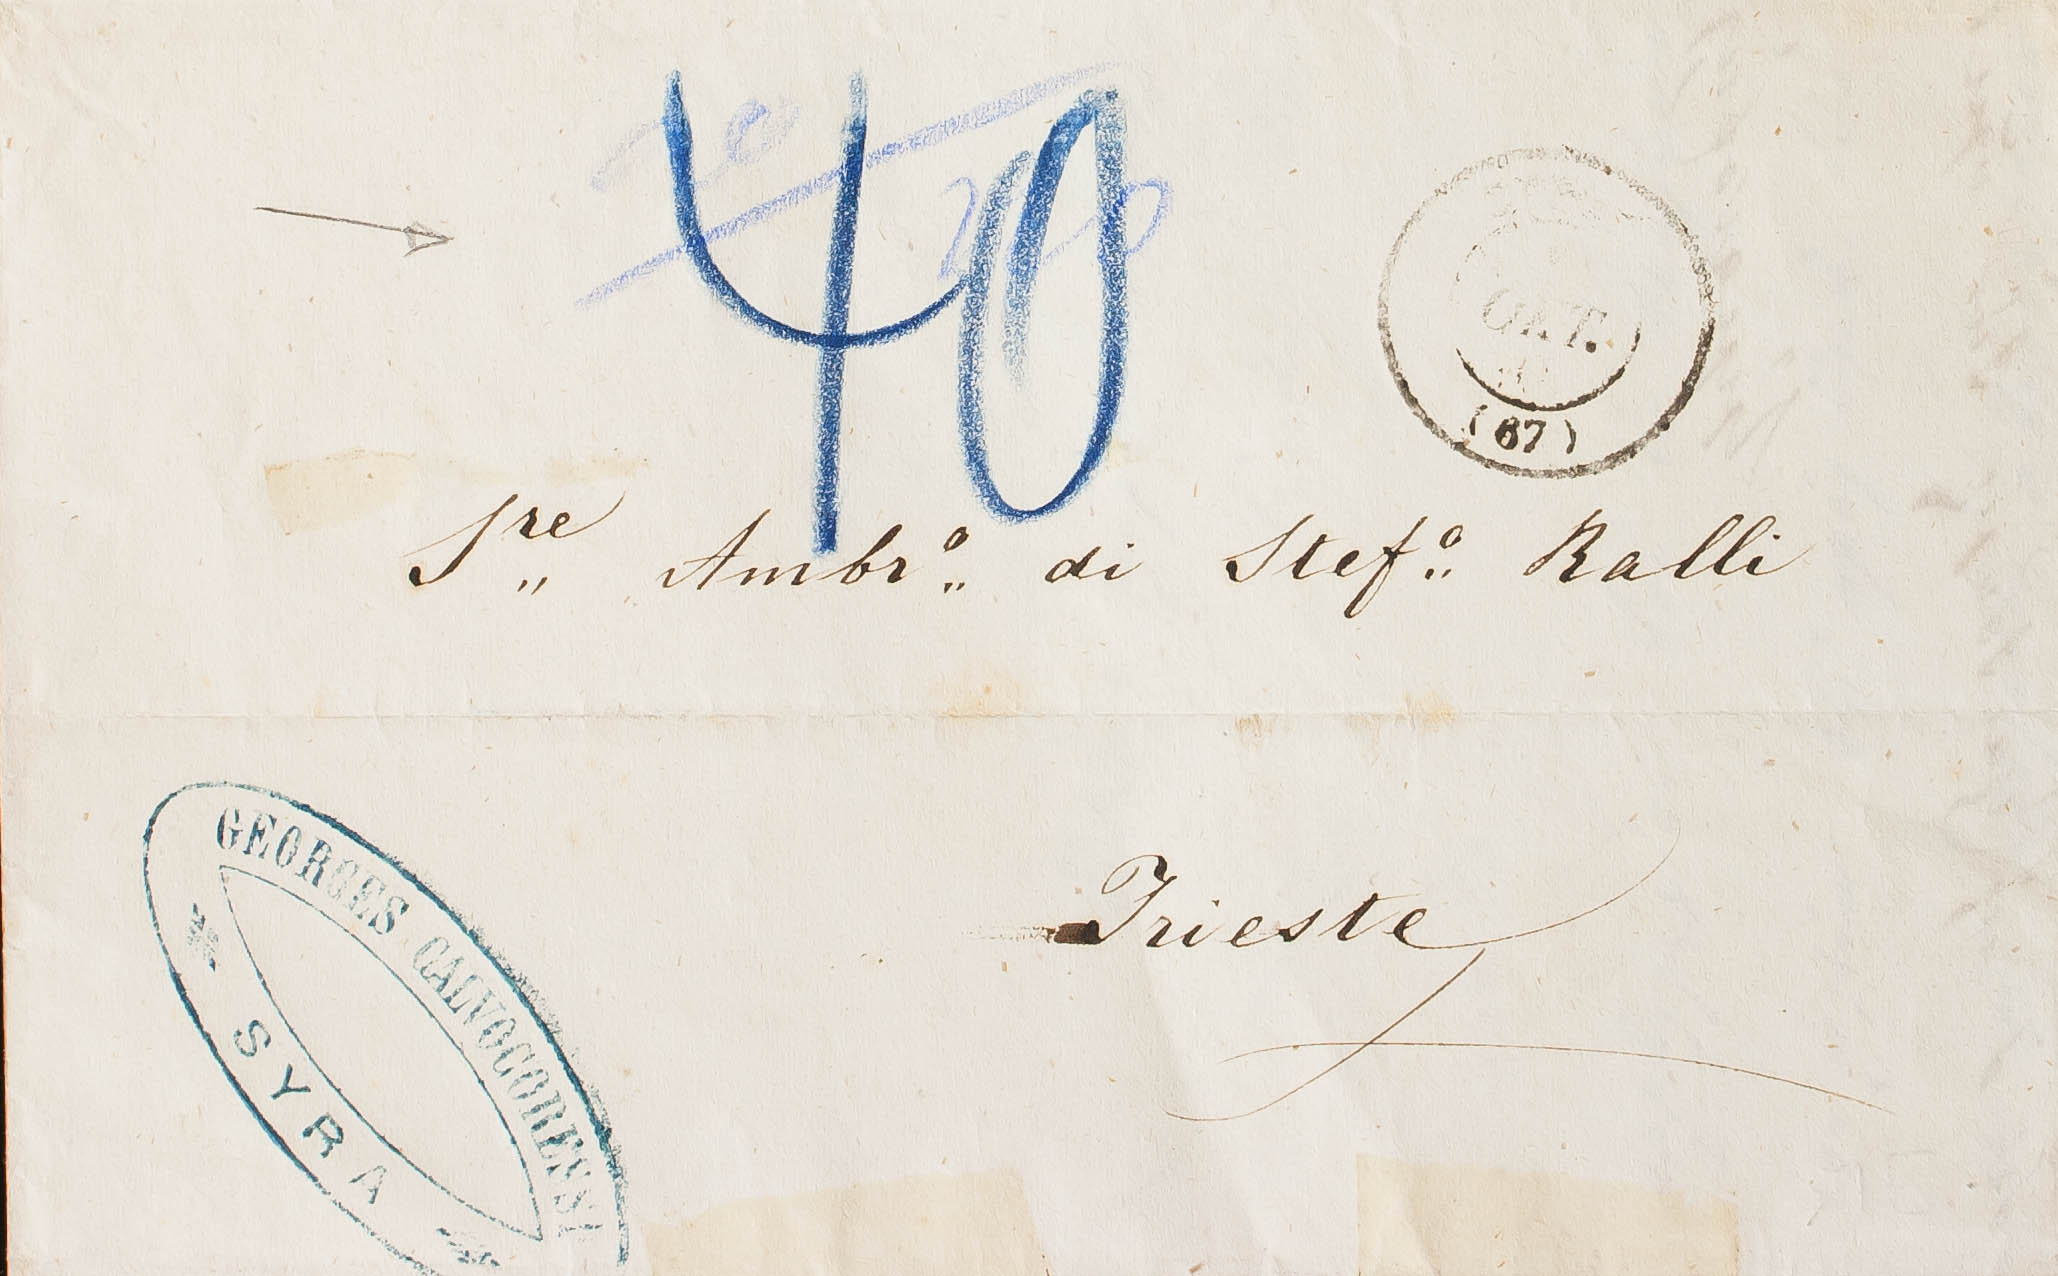 40
ΟΚΤ.
(67)
Sre Ambro. di Stefo. Ralli
Trieste
GEORGES CALVOCORESSI
SYRA